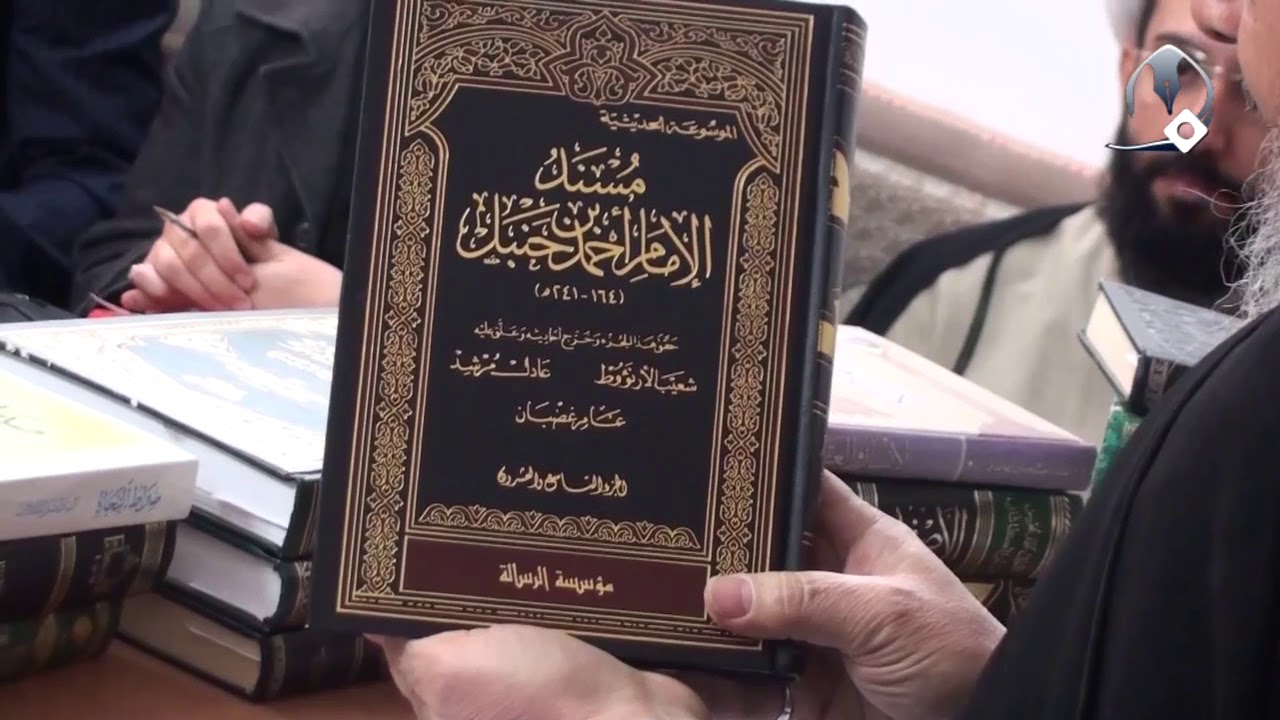 الموسوعة الحديثية
مُسْنَدُ
الإمام أحمد بن حنبل
(١٦٤ - ٢٤١ ه)
حقق هذا الجزء وخرج أحاديثه وعلق عليه
شعيب الأرنؤوط عادل مرشد
عامر غضبان
الجزء السابع والعشرون
مؤسسة الرسالة
صراط النجاة